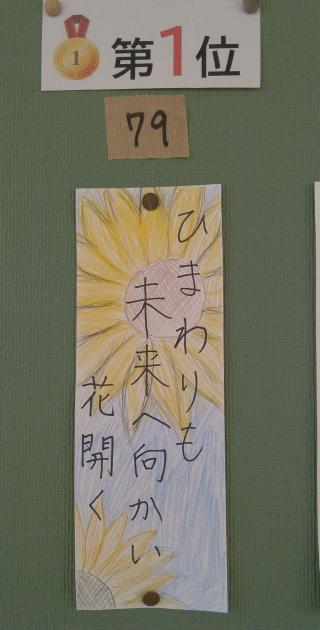 1
第1位
79
ひまわりも
未来へ向かい
花開く